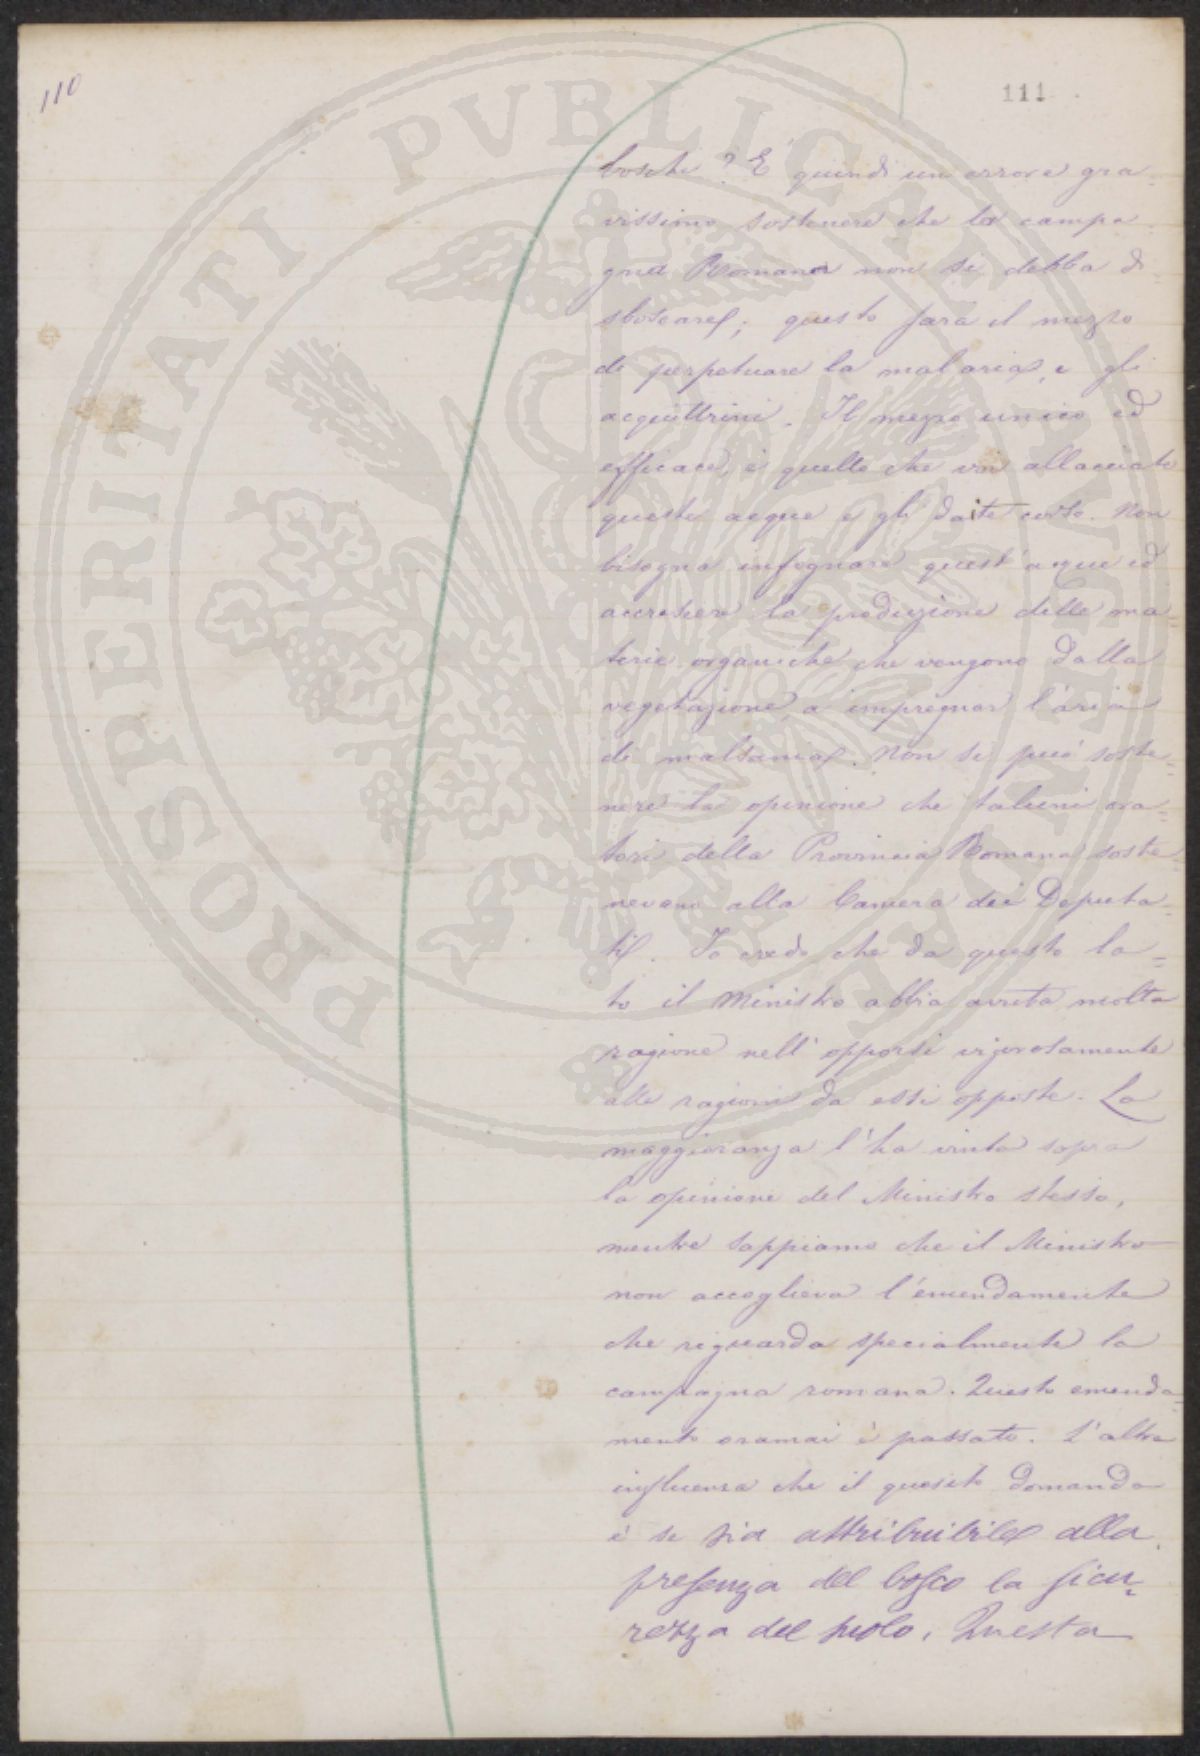 110
111
boschi? E' quindi un errore gra-
vissimo sostenere che la campa
gna Romana non si debba di
sboscare; questo sarà il mezzo
di perpetuare la malaria, e gli
acquittrini. Il mezzo unico ed
efficace, è quello che voi allacciate
queste acque e gli daite corso. Non
bisogna infognare quest'acque ed
accrescere la produzione delle ma=
terie organiche che vengono dalla
vegetazione, a impregnar l'aria
di malsania. Non si può soste=
nere la opinione che taluni ora=
tori della Provincia Romana soste
nevano alla Camera dei Deputa=
ti. Io credo che da questo la=
to il Ministro abbia avuta molta
ragione nell'opporsi vigorosamente
alle ragioni da essi opposte. La
maggioranza l'ha vinta sopra
la opinione del Ministro stesso,
mentre sappiamo che il Ministro
non accoglieva l'emendamente
che riguarda specialmente la
campagna romana. Questo emenda=
mento oramai è passato. L'altra
influenza che il quesito domanda
è se sia attribuibile alla
presenza del bosco la sicu=
rezza del suolo. Questa
PROSPERITATI PVBLICAE AVGENDAE